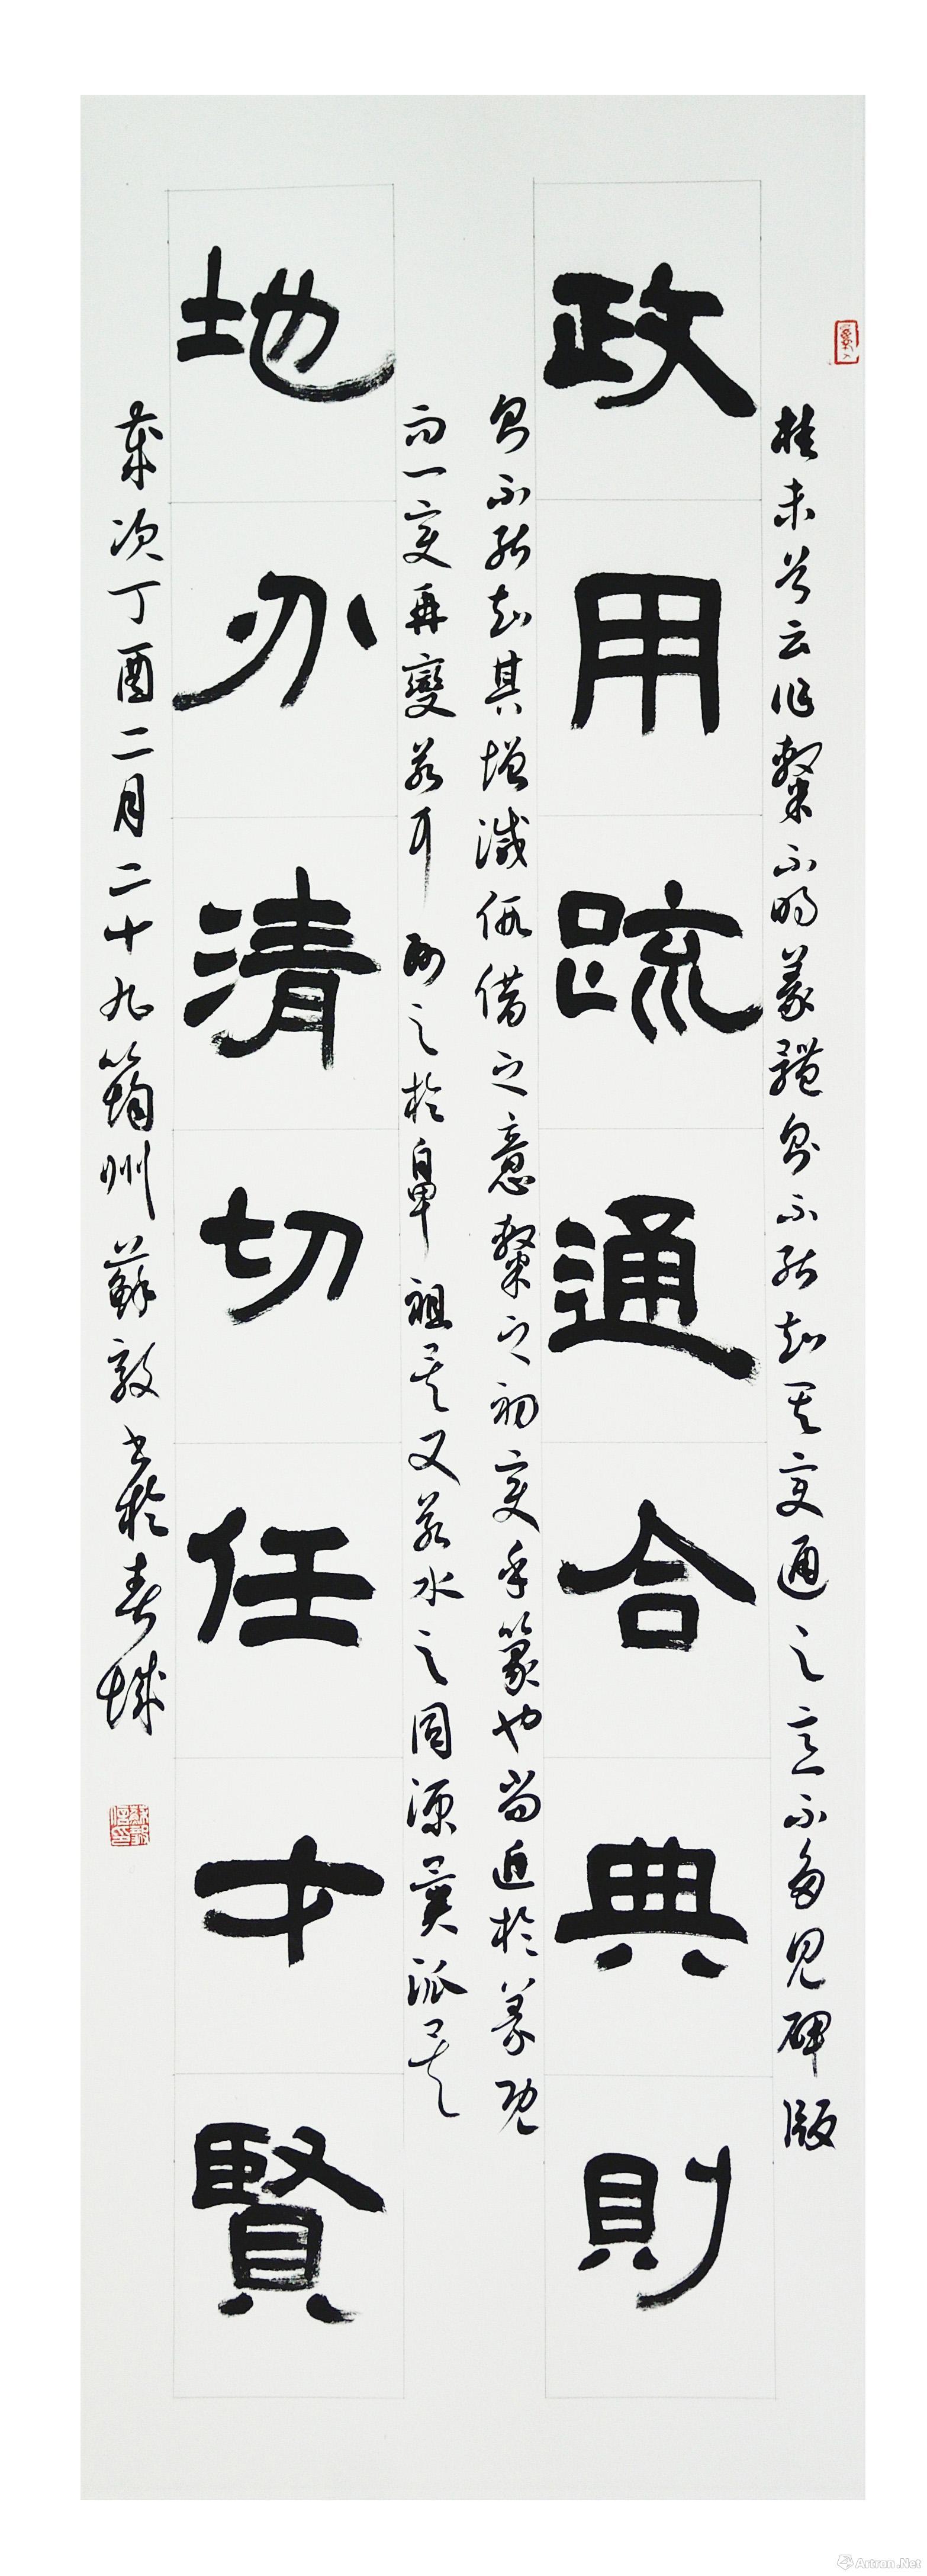 政用疏通合典則
地介清切任才賢
桂未谷云作隸不明篆體則不能知其變通之意不多見碑版
則不能知其增減假借之意隸之初變乎篆也尚近於篆既
而一變再變若耳孫之於鼻祖矣又若水之同源異派矣
歲次丁酉二月二十九筠州蘇毅書於春城
Artron.Net